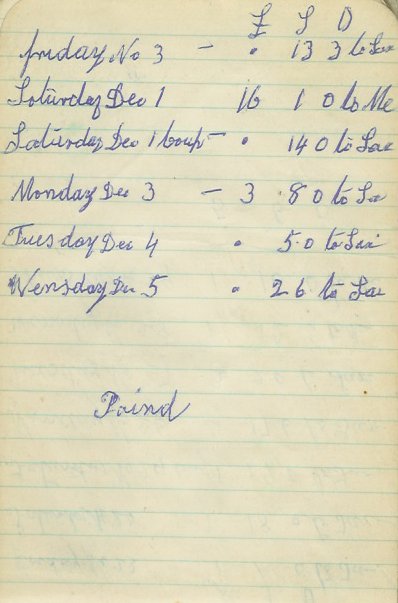 £ S D
friday No 3 - . 13 3 to Sae
Saturday Dec 1 16 1 0 to Me
Saturday Dec 1 - . 14 0 to Sae
Monday Dec 3 - 3 8 0 to Sae
Tuesday Dec 4 . 5.0 to Sae
Wensday Dec 5 . 2 6 to Sae